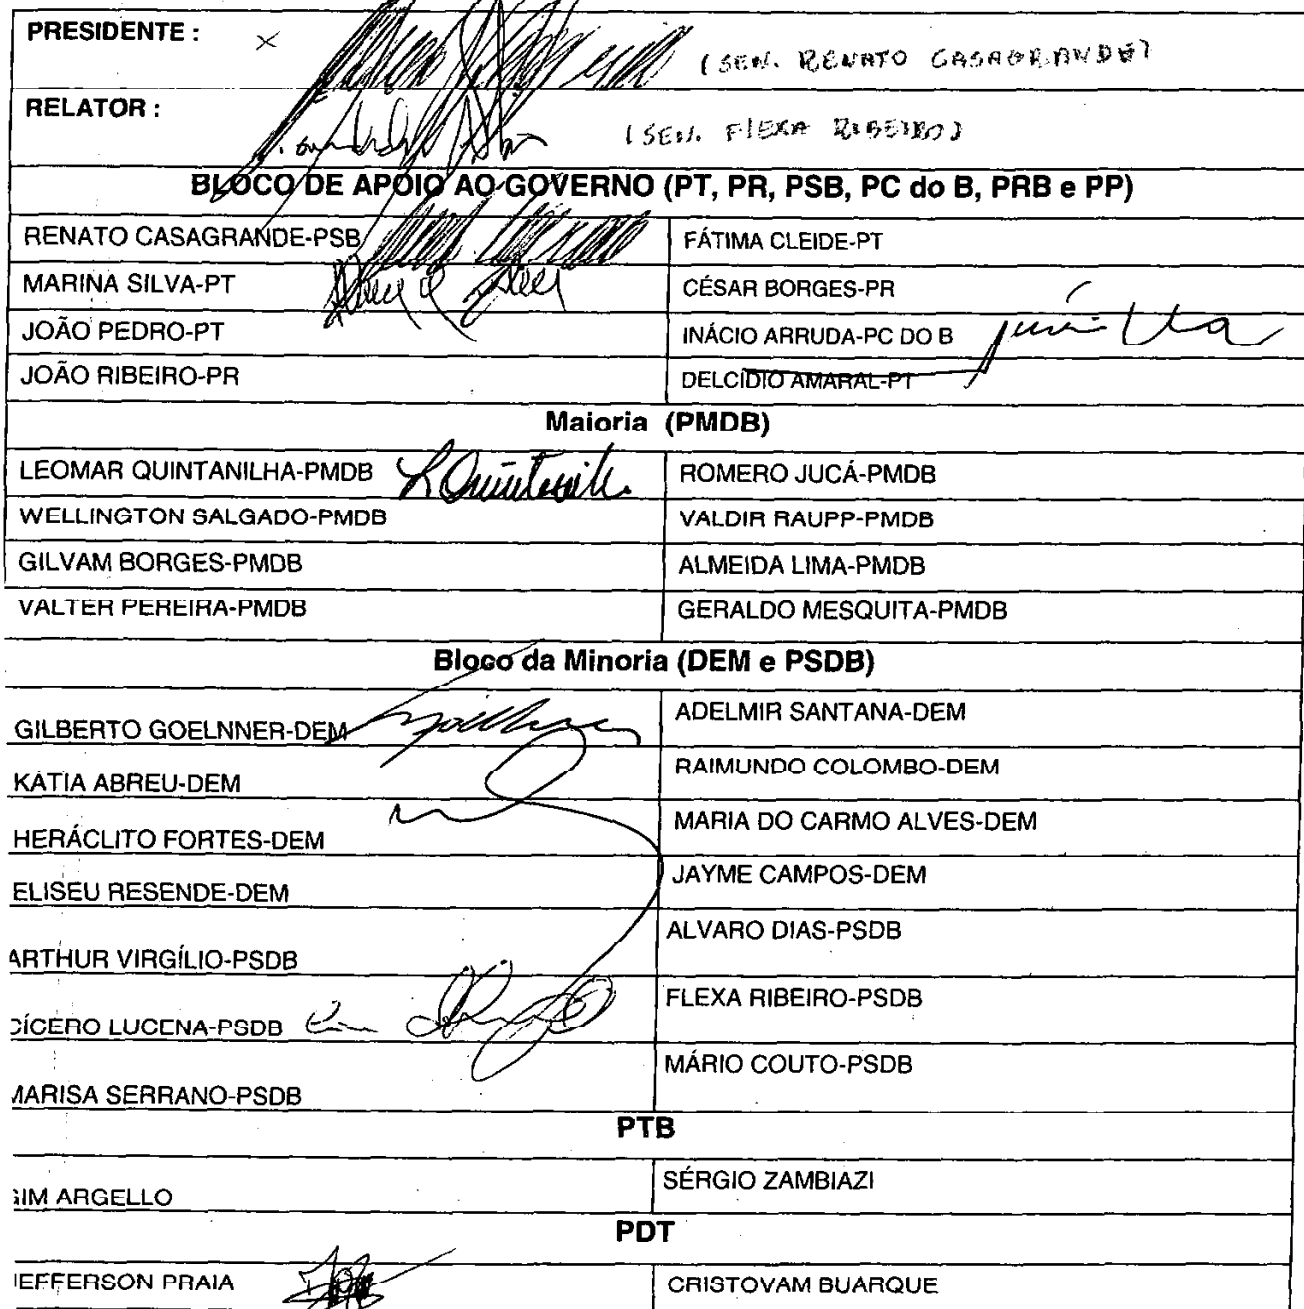 PRESIDENTE : × (SEN. RENATO CASAGRANDE)
RELATOR : (SEN. FLEXA RIBEIRO)
BLOCO DE APOIO AO GOVERNO (PT, PR, PSB, PC do B, PRB e PP)
RENATO CASAGRANDE-PSB FÁTIMA CLEIDE-PT
MARINA SILVA-PT CÉSAR BORGES-PR
JOÃO PEDRO-PT INÁCIO ARRUDA-PC DO B
JOÃO RIBEIRO-PR DELCÍDIO AMARAL-PT
Maioria (PMDB)
LEOMAR QUINTANILHA-PMDB ROMERO JUCÁ-PMDB
WELLINGTON SALGADO-PMDB VALDIR RAUPP-PMDB
GILVAM BORGES-PMDB ALMEIDA LIMA-PMDB
VALTER PEREIRA-PMDB GERALDO MESQUITA-PMDB
Bloco da Minoria (DEM e PSDB)
GILBERTO GOELNNER-DEM ADELMIR SANTANA-DEM
KÁTIA ABREU-DEM RAIMUNDO COLOMBO-DEM
HERÁCLITO FORTES-DEM MARIA DO CARMO ALVES-DEM
ELISEU RESENDE-DEM JAYME CAMPOS-DEM
ARTHUR VIRGÍLIO-PSDB ALVARO DIAS-PSDB
CÍCERO LUCENA-PSDB FLEXA RIBEIRO-PSDB
MARISA SERRANO-PSDB MÁRIO COUTO-PSDB
PTB
GIM ARGELLO SÉRGIO ZAMBIAZI
PDT
JEFFERSON PRAIA CRISTOVAM BUARQUE